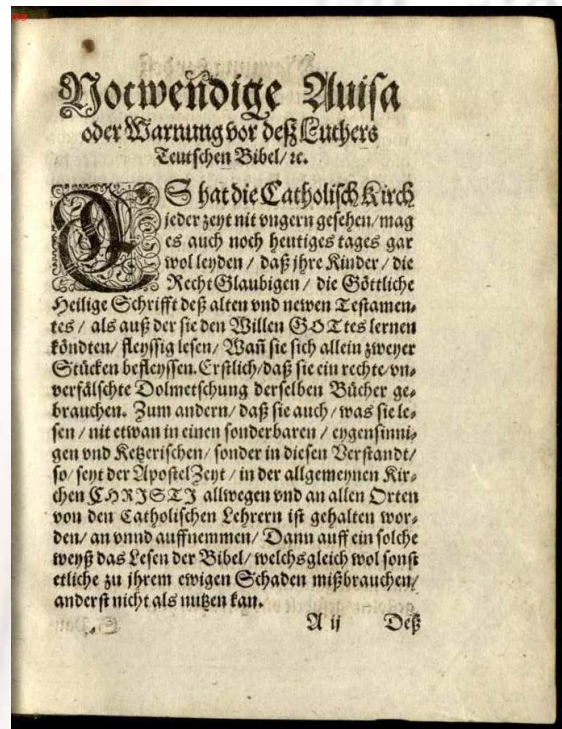 Notwendige Auisa
oder Warnung vor deß Luthers
Teutschen Bibel/ ꝛc.
ES hat die Catholisch Kirch
jeder zeyt nit vngern gesehen/ mag
es auch noch heutiges tages gar
wol leyden / daß jhre Kinder / die
Recht Glaubigen / die Göttliche
Heilige Schrifft deß alten vnd newen Testamen⸗
tes / als auß der sie den Willen GOTtes lernen
köndten/ fleyssig lesen/ Wañ sie sich allein zweyer
Stücken befleyssen. Erstlich/ daß sie ein rechte/ vn⸗
verfälschte Dolmetschung derselben Bücher ge⸗
brauchen. Zum andern/ daß sie auch / was sie le⸗
sen / nit etwan in einen sonderbaren / eygensinni⸗
gen vnd Ketzerischen/ sonder in diesen Verstandt/
so/ seyt der Apostel Zeyt / in der allgemeynen Kir⸗
chen CHRISTI allwegen vnd an allen Orten
von den Catholischen Lehrern ist gehalten wor⸗
den/ an vnnd auffnemmen/ Dann auff ein solche
weyß das Lesen der Bibel/ welchs gleich wol sonst
etliche zu jhrem ewigen Schaden mißbrauchen/
anderst nicht als nutzen kan.
A ij Deß